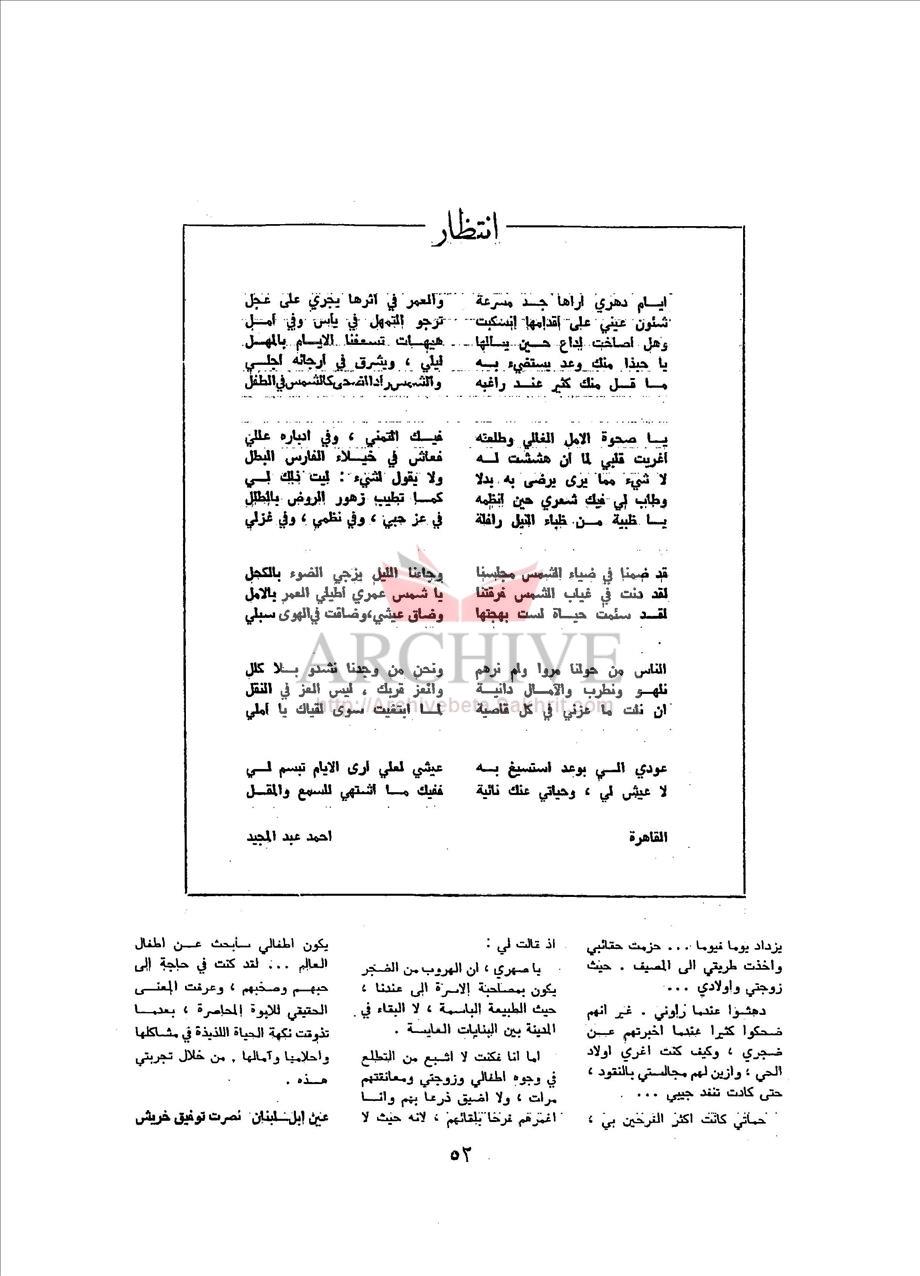 انتظار
ايام دهري اراها جد مسرعة والعمر في اثرها يجري على عجل
شئون عيني على اقدامها انسكبت ترجو التمهل في يأس وفي أمل
وهل اصاخت لداع حين يسألها هيهات تسعفنا الايام بالمهل
يا حبذا منك وعد يستضيء به ليلي ، ويشرق في ارجائه اجلي
ما قل منك كثير عند راغبه والشمس رأد الضحى كالشمس في الطفل
يا صحوة الامل الغالي وطلعته فيك التمني ، وفي ادباره عللي
أغريت قلبي لما أن هششت له فعاش في خيلاء الفارس البطل
لا شيء مما يرى يرضى به بدلا ولا يقول لشيء : ليت ذلك لي
وطاب لي فيك شعري حين انظمه كما تطيب زهور الروض بالطلل
يا ظبية من ظباء النيل رافلة في عز حبي ، وفي نظمي ، وفي غزلي
قد ضمنا في ضياء الشمس مجلسنا وجاءنا الليل يزجي الضوء بالكحل
لقد دنت في غياب الشمس فرقتنا يا شمس عمري أطيلي العمر بالامل
لقد سئمت حياة لست بهجتها وضاق عيشي، وضاقت في الهوى سبلي
الناس من حولنا مروا ولم نرهم ونحن من وجدنا نشدو بلا كلل
نلهو ونطرب والآمال دانية والعز قربك ، ليس العز في النقل
ان نلت ما عزني في كل قاصية لما ابتغيت سوى لقياك يا أملي
عودي الي بوعد استسيغ به عيشي لعلي ارى الايام تبسم لي
لا عيش لي ، وحياتي عنك نائية ففيك ما اشتهي للسمع والمقل
القاهرة احمد عبد المجيد
ARCHIVE
http://Archivebeta.Sakhrit.com
يزداد يوما فيوما ... حزمت حقائبي
واخذت طريقي الى المصيف . حيث
زوجتي واولادي ...
دهشوا عندما رأوني . غير انهم
ضحكوا كثيرا عندما اخبرتهم عن
ضجري ، وكيف كنت اغري اولاد
الحي ، وازين لهم مجالستي بالنقود ،
حتى كادت تنفد جيبي ...
حماتي كانت اكثر الفرحين بي ،
اذ قالت لي :
يا صهري ، ان الهروب من الضجر
يكون بمصاحبة الاسرة الى عندنا ،
حيث الطبيعة الباسمة ، لا البقاء في
المدينة بين البنايات العابسة .
اما انا فكنت لا اشبع من التطلع
في وجوه اطفالي وزوجتي ومعانقتهم
مرات ، ولا اضيق ذرعا بهم وانا
اغمرهم فرحا بلقائهم ، لانه حيث لا
يكون اطفالي سأبحث عن اطفال
العالم ... لقد كنت في حاجة إلى
حبهم وصخبهم ، وعرفت المعنى
الحقيقي للابوة المحاصرة ، بعدما
تذوقت نكهة الحياة اللذيذة في مشاكلها
واحلامها وآمالها . من خلال تجربتي
هذه .
عين إبل - لبنان نصرت توفيق خريش
٥٢